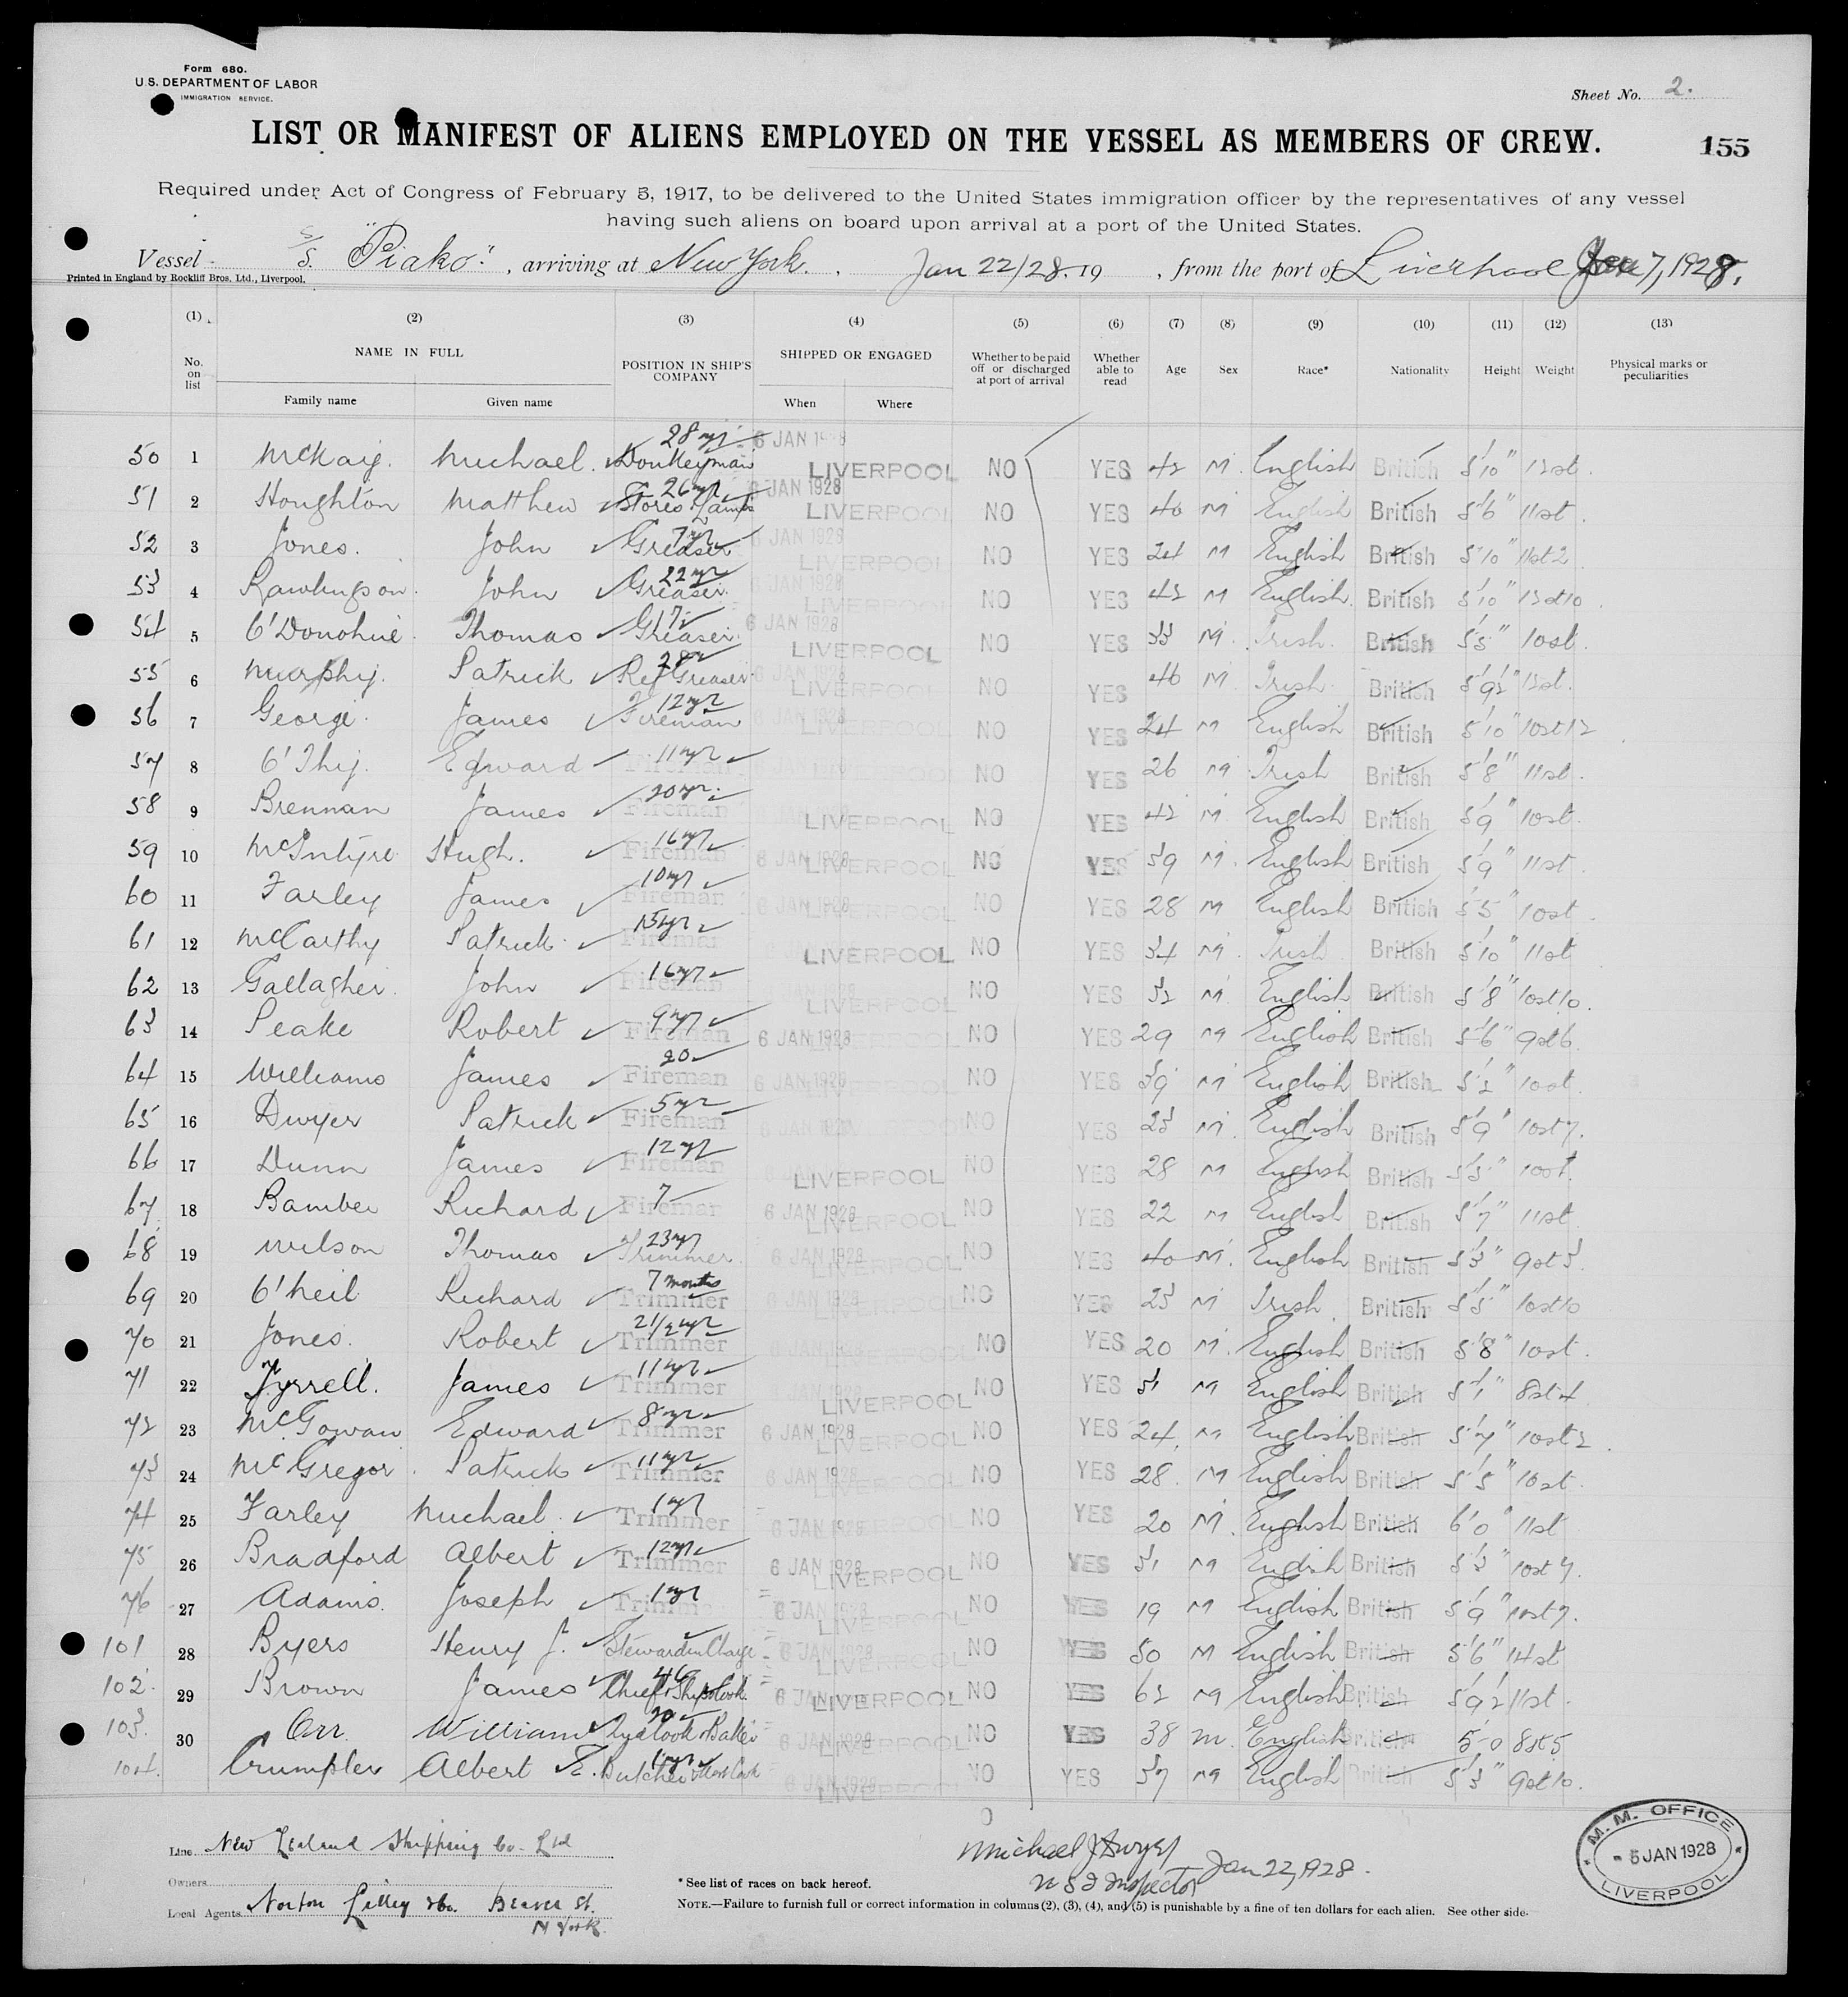 Form 680.
U.S. DEPARTMENT OF LABOR
IMMIGRATION SERVICE.
Sheet No. 2.
LIST OR MANIFEST OF ALIENS EMPLOYED ON THE VESSEL AS MEMBERS OF CREW.
155
Required under Act of Congress of February 5, 1917, to be delivered to the United States immigration officer by the representatives of any vessel
having such aliens on board upon arrival at a port of the United States.
Vessel S/S. "Piako", arriving at New York. Jan 22/28. 19 , from the port of Liverpool Jan 7, 1928.
Printed in England by Rockliff Bros. Ltd., Liverpool.
(1) (2) (3) (4) (5) (6) (7) (8) (9) (10) (11) (12) (13)
No. on list NAME IN FULL POSITION IN SHIP'S COMPANY SHIPPED OR ENGAGED Whether to be paid off or discharged at port of arrival Whether able to read Age Sex Race* Nationality Height Weight Physical marks or peculiarities
Family name Given name When Where
50 1 McKaig. Michael. 28 yr Donkeyman 6 JAN 1928 LIVERPOOL NO YES 42 M. English British 5'10" 12st.
51 2 Houghton Matthew 26 yr Stores Lamps 6 JAN 1928 LIVERPOOL NO YES 40 M English British 5'6" 11st.
52 3 Jones. John 7 yr Greaser 6 JAN 1928 LIVERPOOL NO YES 24 M English British 5'10" 11st2
53 4 Rawlinson. John 22 yr Greaser. 6 JAN 1928 LIVERPOOL NO YES 42 M English. British 5'10" 12st10.
54 5 O'Donohue Thomas 17 Greaser. 6 JAN 1928 LIVERPOOL NO YES 33 M. Irish. British 5'5" 10st.
55 6 Murphy. Patrick 28 Ref Greaser 6 JAN 1928 LIVERPOOL NO YES 46 M. Irish. British 5'9½" 12st.
56 7 George. James 12 yr Fireman 6 JAN 1928 LIVERPOOL NO YES 24 M English British 5'10" 10st12
57 8 Edward 11 yr Fireman NO YES 26 M Irish British 5'8" 11st.
58 9 Brennan James 20 yr. Fireman LIVERPOOL NO YES 42 M. English British 5'9" 10st.
59 10 McIntyre Hugh. 16 yr Fireman 6 JAN 1928 LIVERPOOL NO YES 39 M. English British 5'9" 11st.
60 11 Farley James 10 yr Fireman 6 JAN 1928 LIVERPOOL NO YES 28 M English British 5'5" 10st.
61 12 McCarthy Patrick. 15 yr Fireman LIVERPOOL NO YES 34 M. Irish British 5'10" 11st
62 13 Gallagher. John 16 yr Fireman LIVERPOOL NO YES 32 M. English British 5'8" 10st10.
63 14 Peake Robert 9 yr Fireman 6 JAN 1928 LIVERPOOL NO YES 29 M English British 5'6" 9st6.
64 15 Williams James 20 Fireman 6 JAN 1928 LIVERPOOL NO YES 39 M English British 5'2" 10st.
65 16 Dwyer Patrick 5 yr Fireman 6 JAN 1928 LIVERPOOL NO YES 23 M. English British 5'9" 10st7.
66 17 Dunn James 12 yr Fireman LIVERPOOL NO YES 28 M English British 5'5" 10st.
67 18 Bamber Richard 7 Fireman 6 JAN 1928 LIVERPOOL NO YES 22 M English British 5'7" 11st.
68 19 Wilson Thomas 23 yr Trimmer. 6 JAN 1928 LIVERPOOL NO YES 40 M. English British 5'3" 9st3.
69 20 O'Neil Richard 7 months Trimmer 6 JAN 1928 LIVERPOOL NO YES 23 M Irish. British 5'5" 10st10
70 21 Jones. Robert 2 1/2 yr Trimmer 6 JAN 1928 LIVERPOOL NO YES 20 M. English British 5'8" 10st.
71 22 Tyrrell. James 11 yr Trimmer LIVERPOOL NO YES 31 M English British 5'1" 8st4
72 23 McGowan Edward 8 yr Trimmer 6 JAN 1928 LIVERPOOL NO YES 24. M English British 5'7" 10st2.
73 24 McGregor. Patrick 11 yr Trimmer 6 JAN 1928 LIVERPOOL NO YES 28. M English British 5'5" 10st.
74 25 Farley Michael. 1 yr Trimmer 6 JAN 1928 LIVERPOOL NO YES 20 M. English British 6'0" 11st
75 26 Bradford Albert 12 yr Trimmer 6 JAN 1928 LIVERPOOL NO YES 31 M English British 5'3" 10st7.
76 27 Adams. Joseph 1 yr Trimmer 6 JAN 1928 LIVERPOOL NO YES 19 M English British 5'9" 10st7.
101 28 Byers Henry J. Steward in Charge 6 JAN 1928 LIVERPOOL NO YES 50 M English British 5'6" 14st
102. 29 Brown James 46 Chief & Ships Cook. 6 JAN 1928 LIVERPOOL NO YES 62 M English British 5'9½ 11st.
103. 30 Orr. William 20 2nd Cook & Baker 6 JAN 1928 LIVERPOOL NO YES 38 M. English British 5'-0 8st5
104. Crumpler Albert E. Butcher 6 JAN 1928 LIVERPOOL NO YES 37 M English British 5'3" 9st10.
Line New Zealand Shipping Co. Ltd
Owners
Local Agents Norton Lilley & Co. Beaver St.
N York.
Michael J Dwyer
U S I Inspector Jan 22, 1928.
* See list of races on back hereof.
NOTE.—Failure to furnish full or correct information in columns (2), (3), (4), and (5) is punishable by a fine of ten dollars for each alien. See other side.
M. M. OFFICE
- 5 JAN 1928
LIVERPOOL